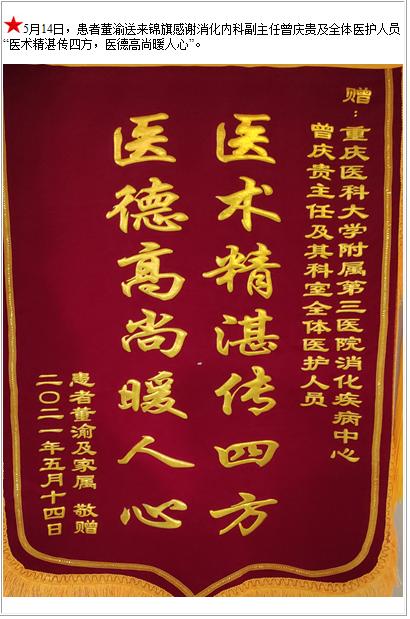 5月14日，患者董渝送来锦旗感谢消化内科副主任曾庆贵及全体医护人员
“医术精湛传四方，医德高尚暖人心”。
赠：重庆医科大学附属第三医院消化疾病中心
曾庆贵主任及其科室全体医护人员
医术精湛传四方
医德高尚暖人心
患者董渝及家属 敬赠
二〇二一年五月十四日